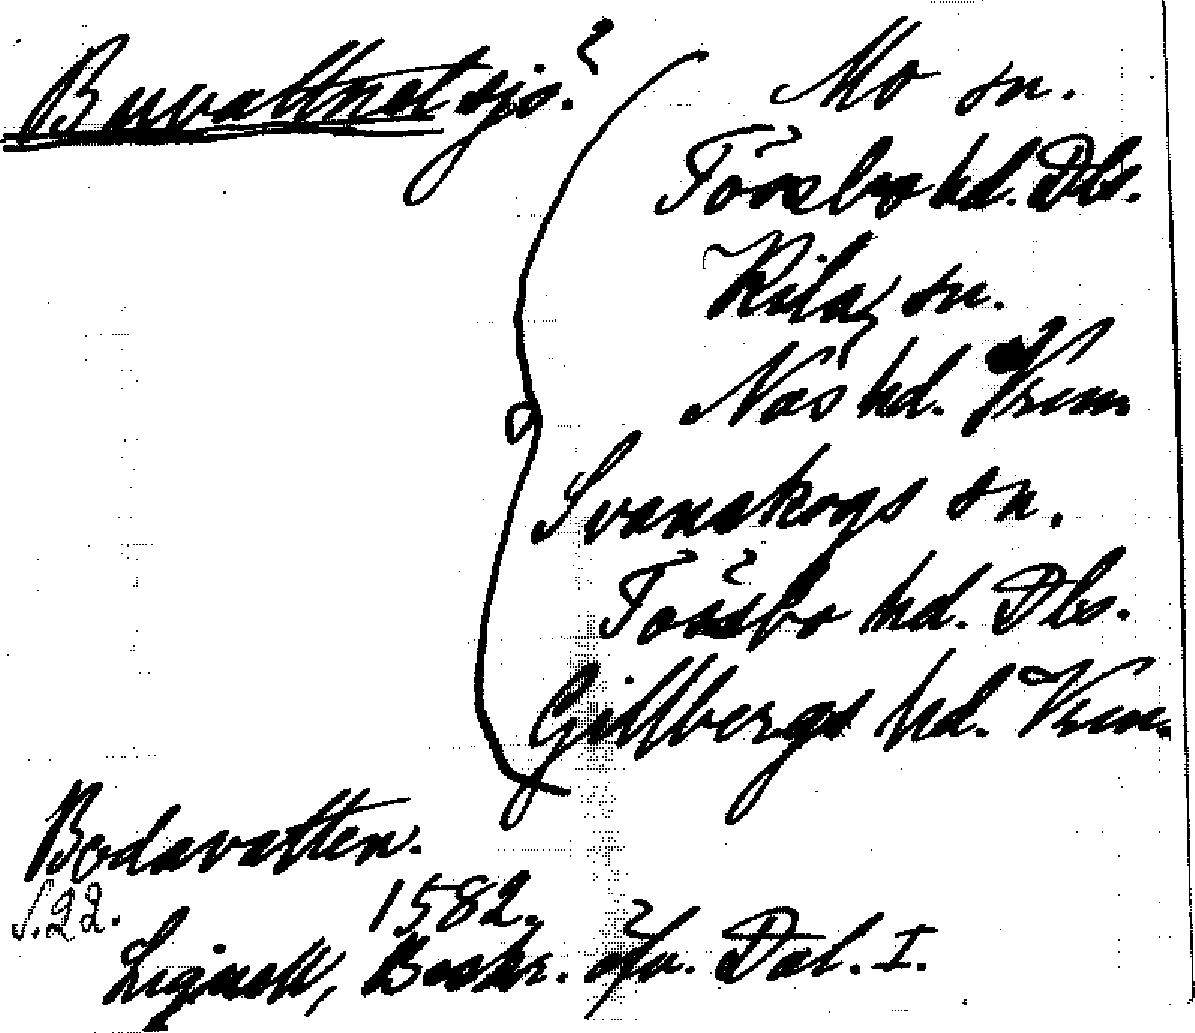 Buvattnet sjö?
Mo sn.
Tössbo hd. Dls.
Kila sn.
Näs hd. Vrm.
Svanskogs sn.
Tössbo hd. Dls.
Gillbergs hd. Vrm.
Bodavatten.
S. 22. 1582.
Lignell, Beskr. öfv. Dal. I.